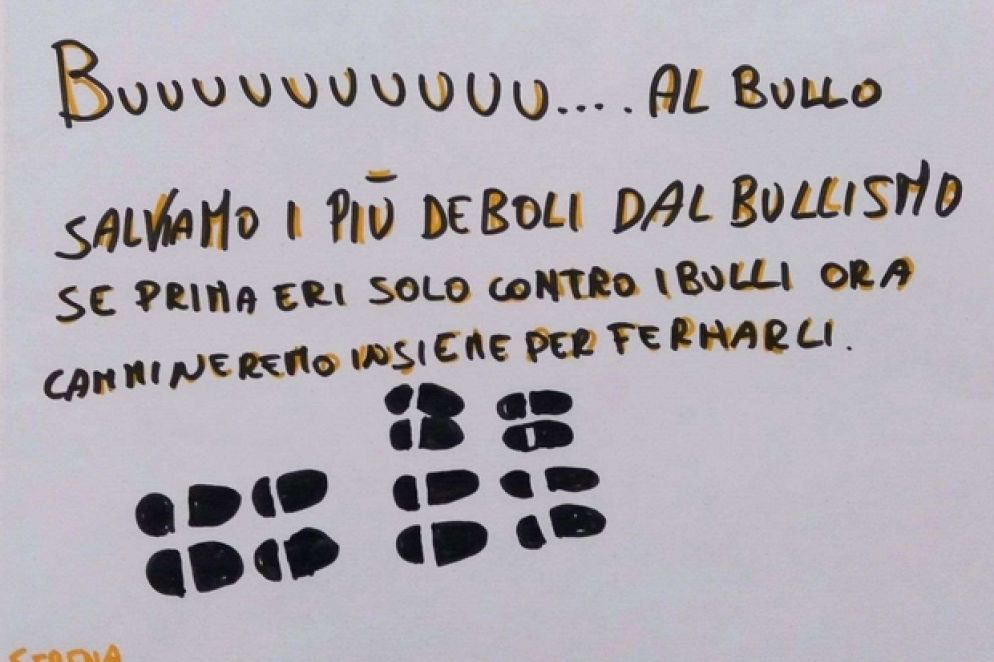 BUUUUUUUUUUU.... AL BULLO
SALVIAMO I PIÙ DEBOLI DAL BULLISMO
SE PRIMA ERI SOLO CONTRO I BULLI ORA
CAMMINEREMO INSIEME PER FERMARLI.